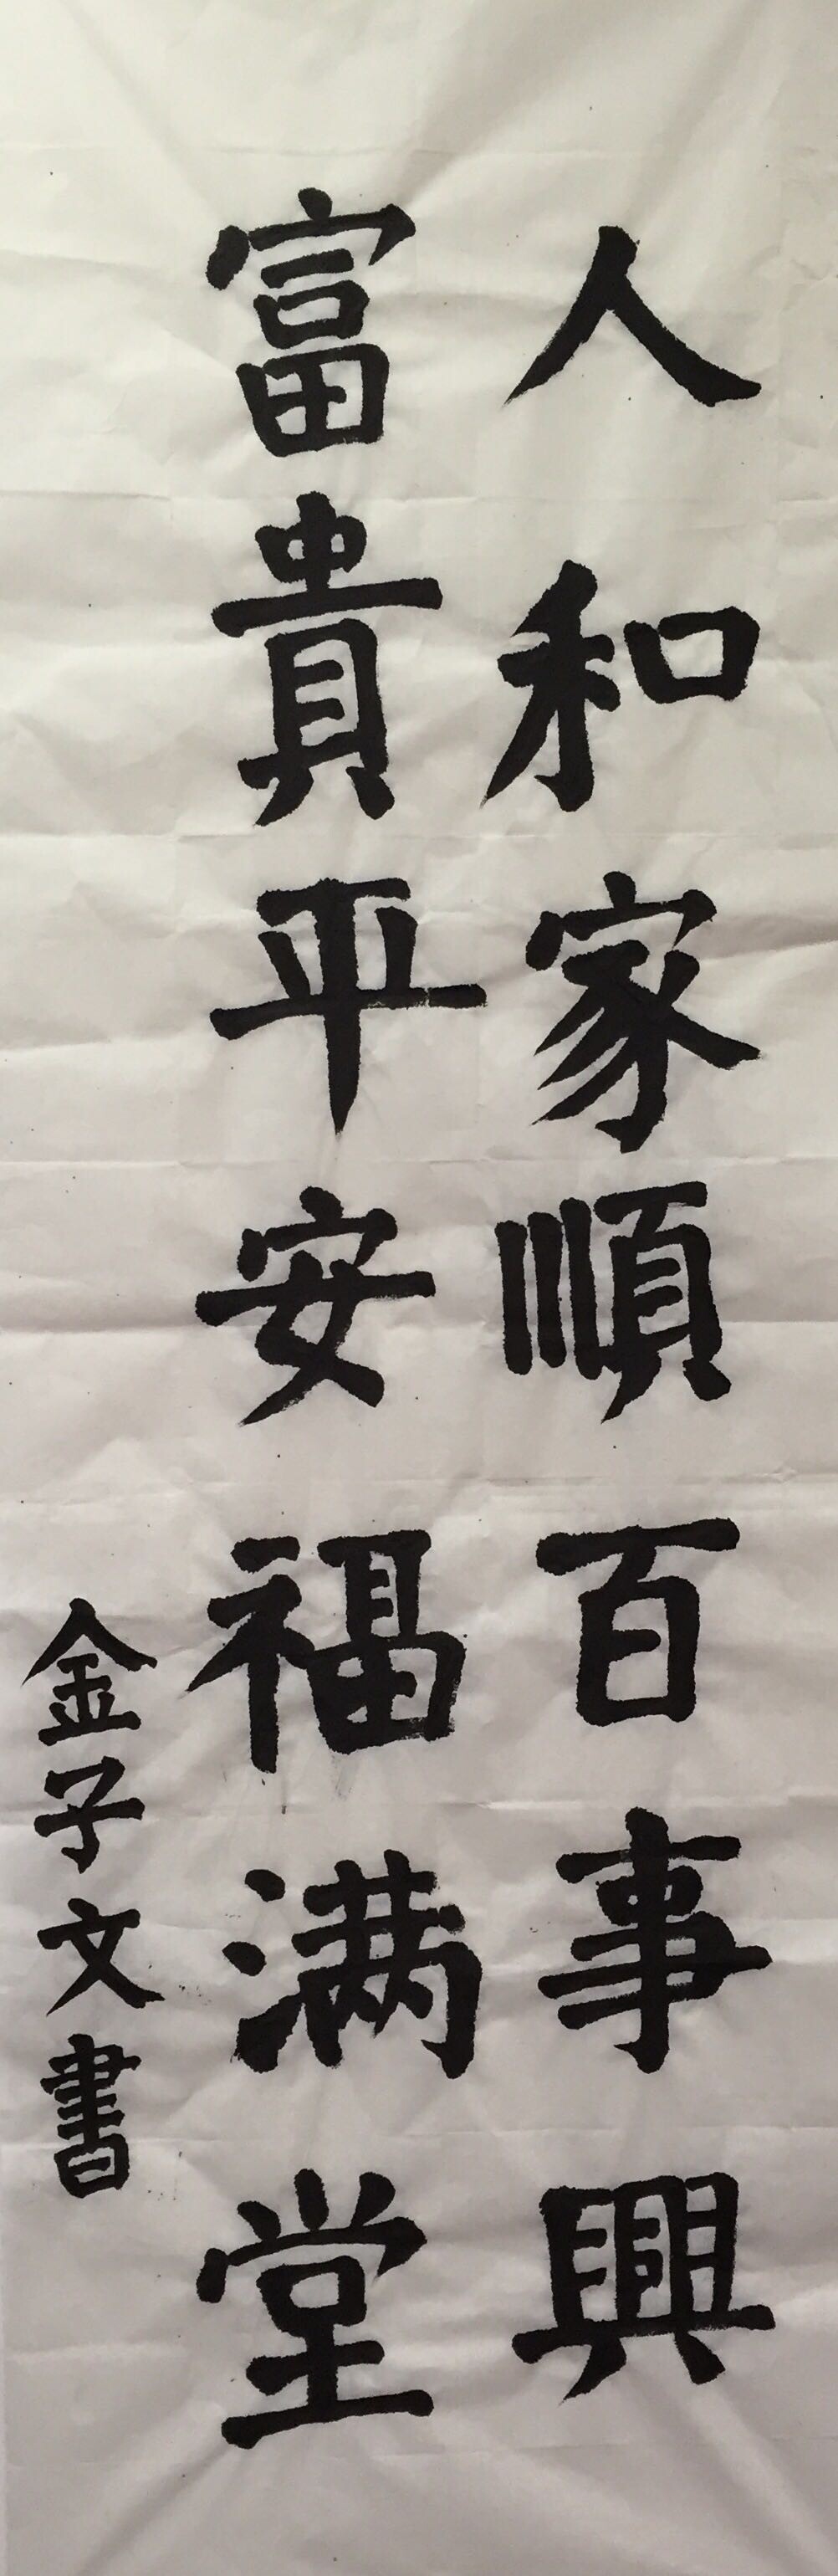 人和家順百事興
富貴平安福满堂
金子文書